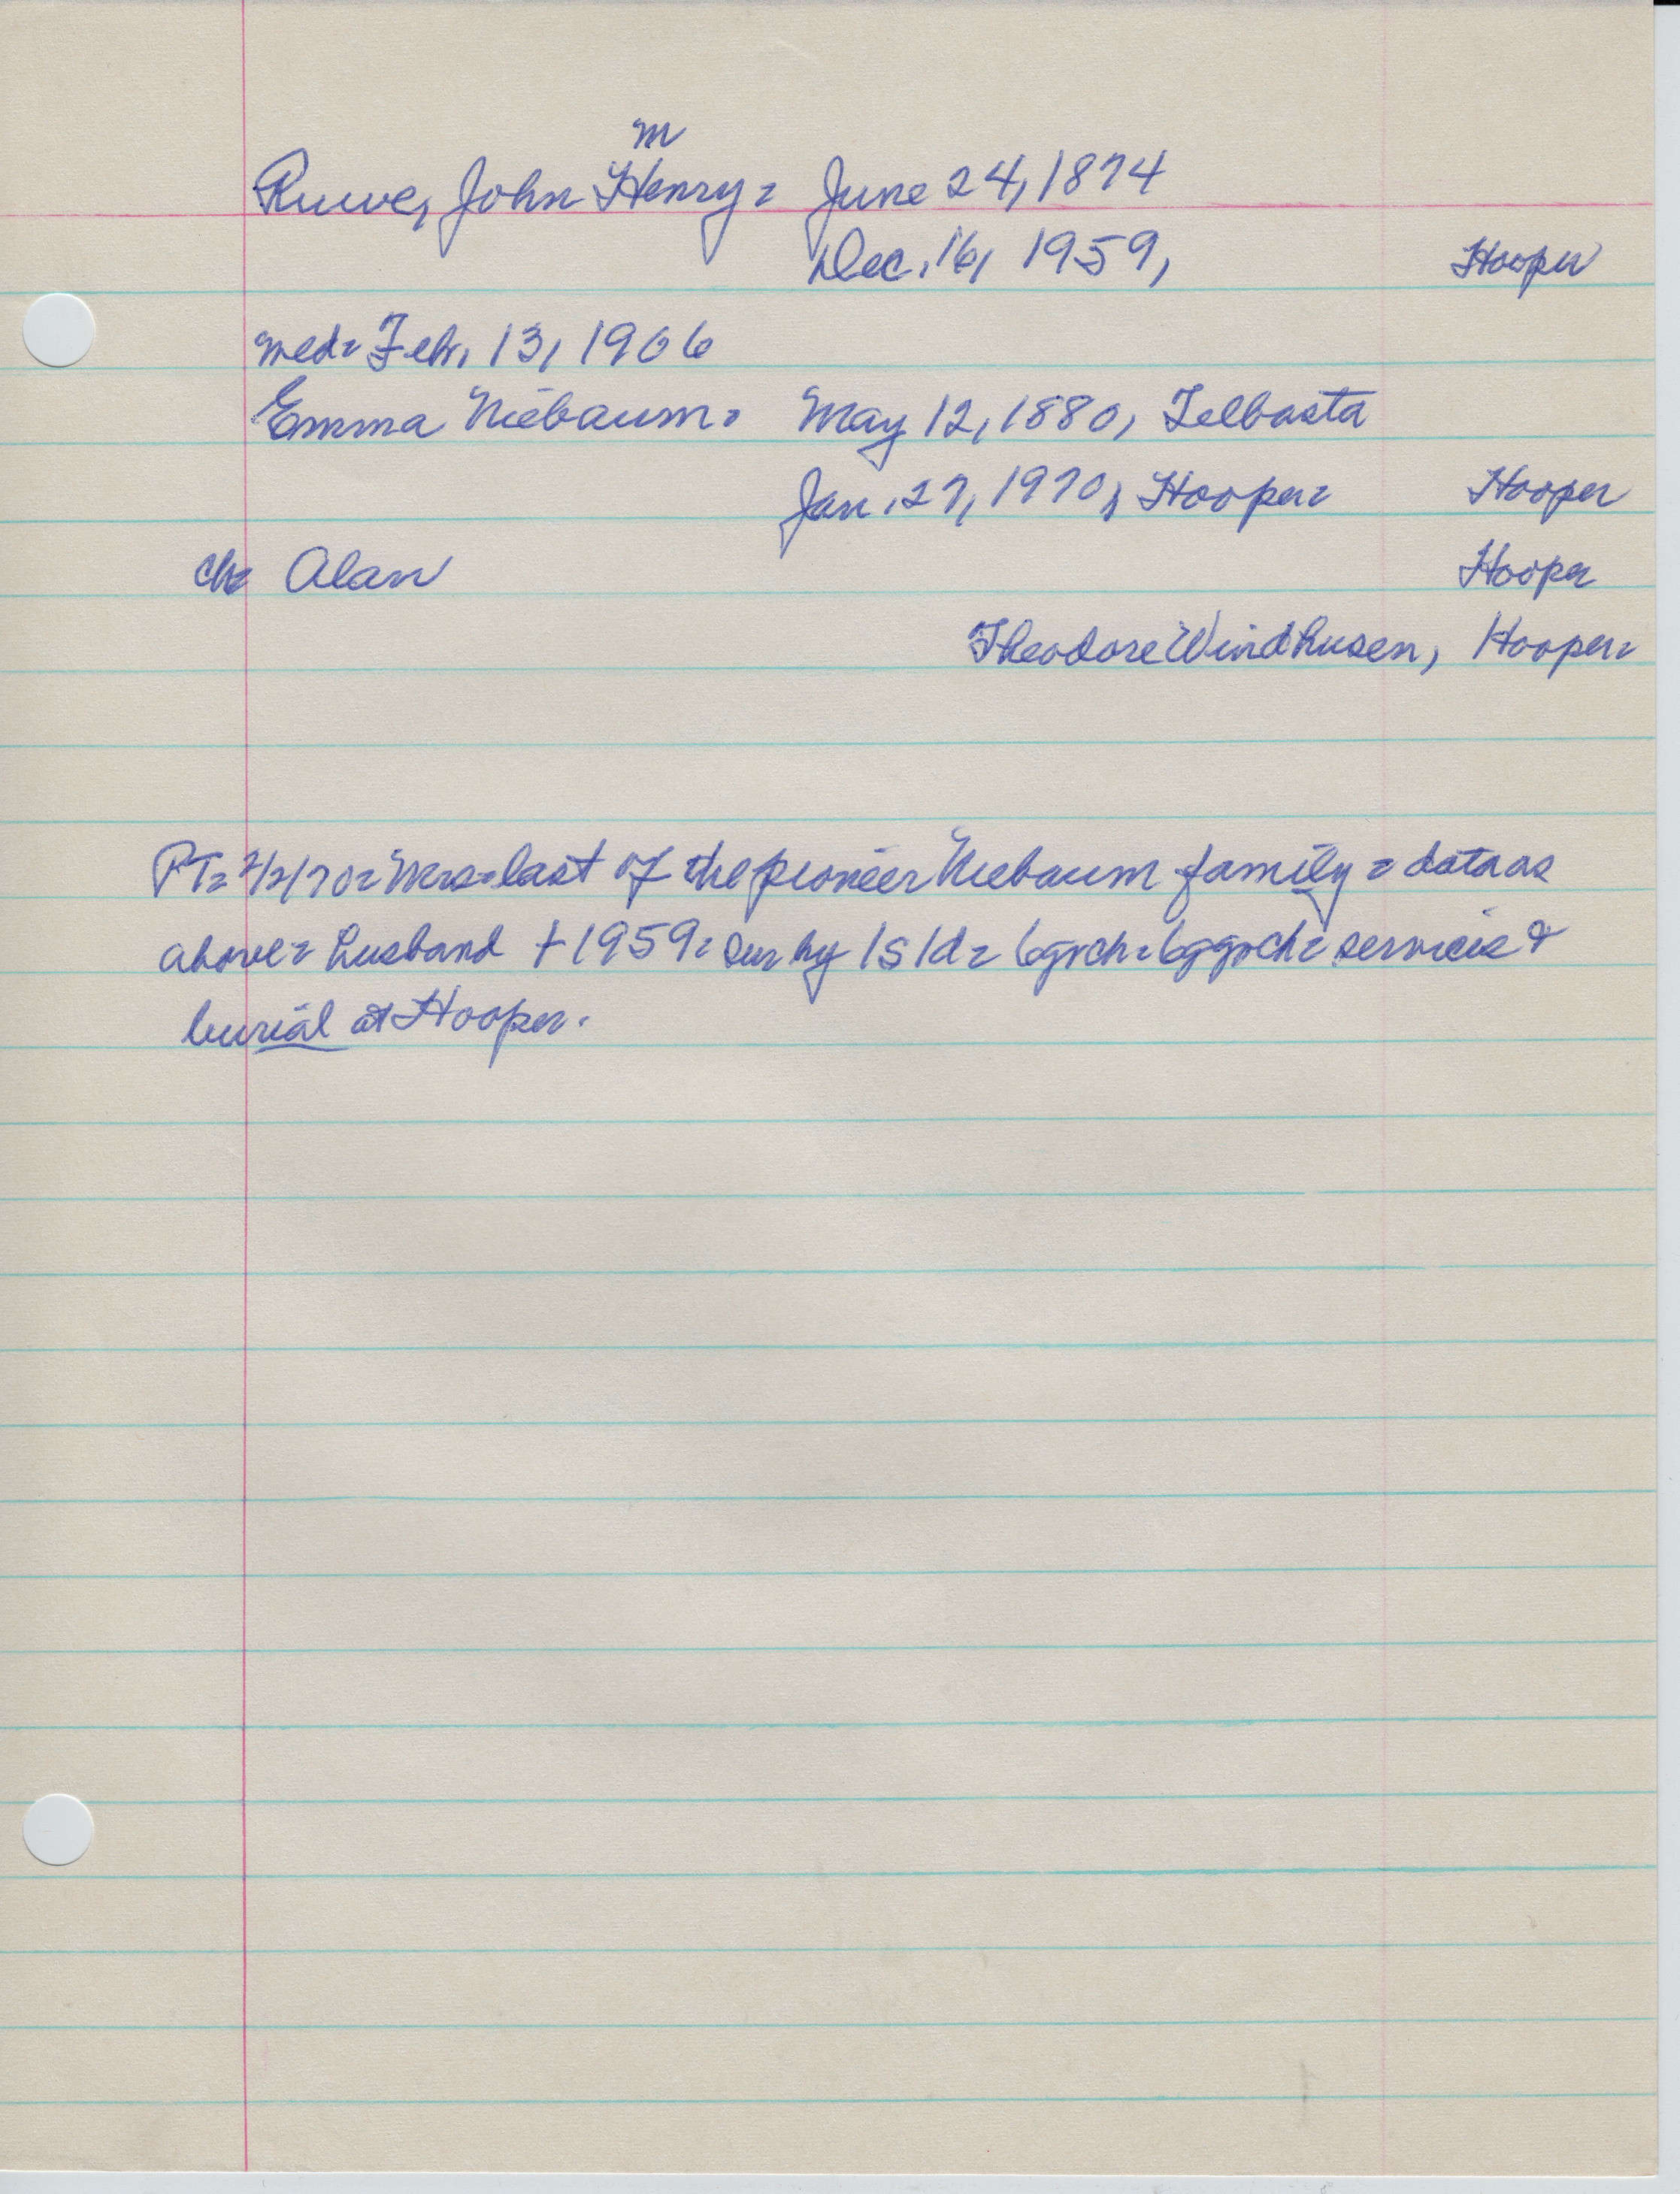 m
Ruwe, John Henry= June 24, 1874
Dec. 16, 1959, Hooper
wed= Feb. 13, 1906
Emma Niebaum= May 12, 1880, Telbasta
Jan. 27, 1970, Hooper= Hooper
ch= Alan Hooper
Theodore Windhusen, Hooper=
PT= 2/2/70= Mrs=last of the pioneer Niebaum family= data as
above= husband + 1959= sur by 1s 1d= 6grch= 6ggrch= services &
burial at Hooper.